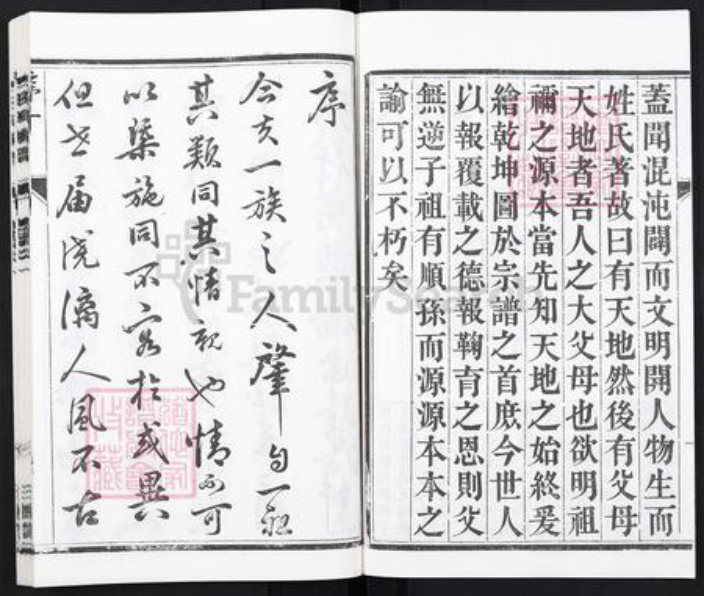 蓋聞混沌闢而文明開人物生而
姓氏著故曰有天地然後有父母
天地者吾人之大父母也欲明祖
禰之源本當先知天地之始終爰
繪乾坤圖於宗譜之首庶今世人
以報覆載之德報鞠育之恩則父
無逆子祖有順孫而源源本本之
諭可以不朽矣
序
合支一族之人肇自一
其類同其情親也情而可
以渠施同不容於或異
但世届澆漓人風不古
FamilySearch